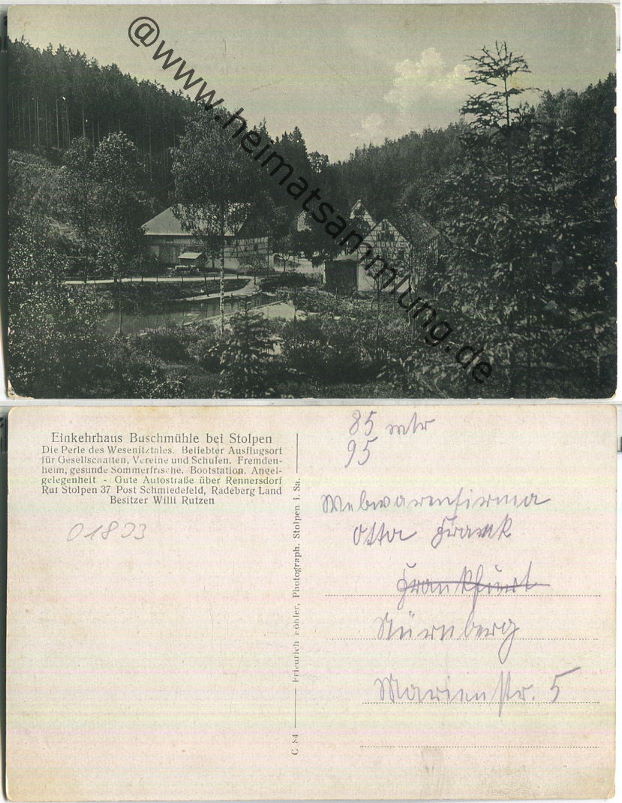 @www.heimatsammlung.de
Einkehrhaus Buschmühle bei Stolpen
Die Perle des Wesenitztales. Beliebter Ausflugsort
für Gesellschaften, Vereine und Schulen. Fremden-
heim, gesunde Sommerfrische. Bootstation. Angel-
gelegenheit - Gute Autostraße über Rennersdorf
Ruf Stolpen 37 Post Schmiedefeld, Radeberg Land
Besitzer Willi Rutzen
01833
C 84 Friedrich Köhler, Photograph. Stolpen i. Sa.
85 mtr
95
Webwarenfirma
Otto Frank
Frankfurt
Nürnberg
Marienstr. 5